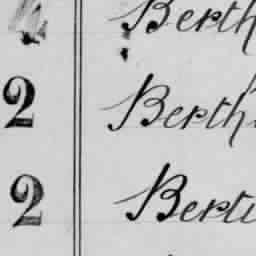 Berth
2 Berth
2 Bert